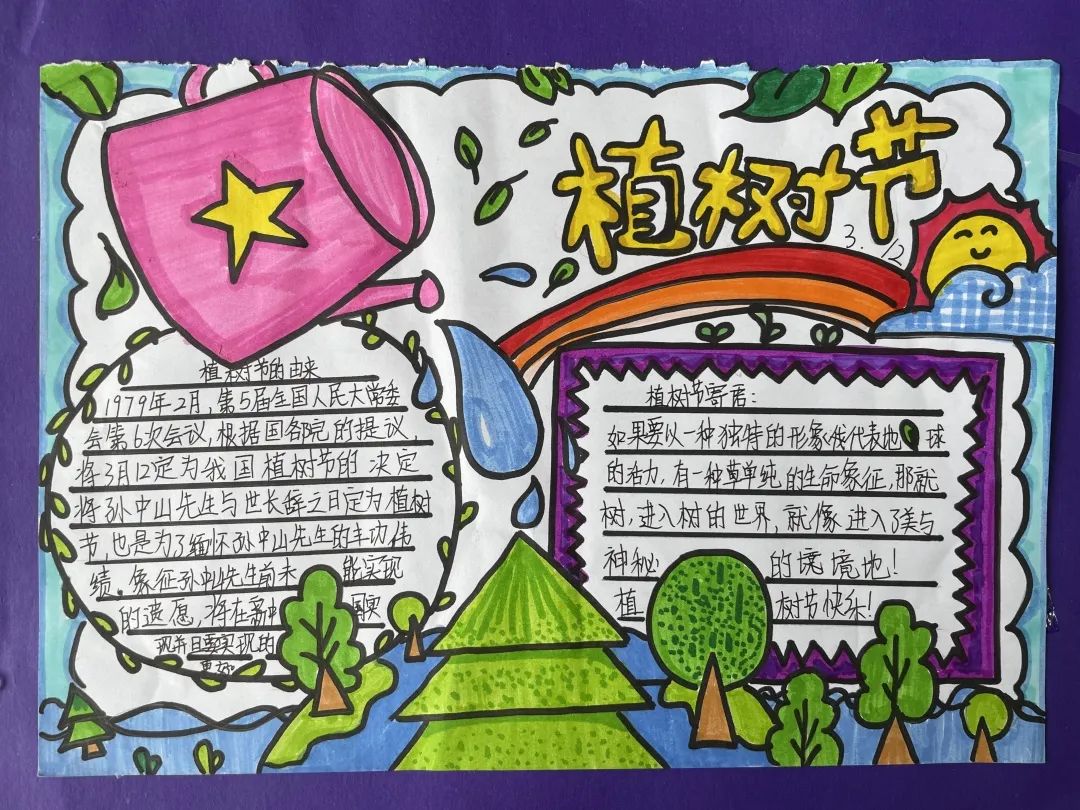 植树节
3.12
植树节的由来
1979年2月,第5届全国人民大常委
会第6次会议,根据国务院的提议,
将3月12定为我国植树节的决定
将孙中山先生与世长辞之日定为植树
节,也是为了缅怀孙中山先生的丰功伟
绩。象征孙中山先生前未 能实现
的遗愿,将在新中 国实
现并且要实现的
更好
植树节寄语:
如果要以一种独特的形象代表地球
的活力,有一种单纯的生命象征,那就
树,进入树的世界,就像进入了美与
神秘 的境地!
植 树节快乐!